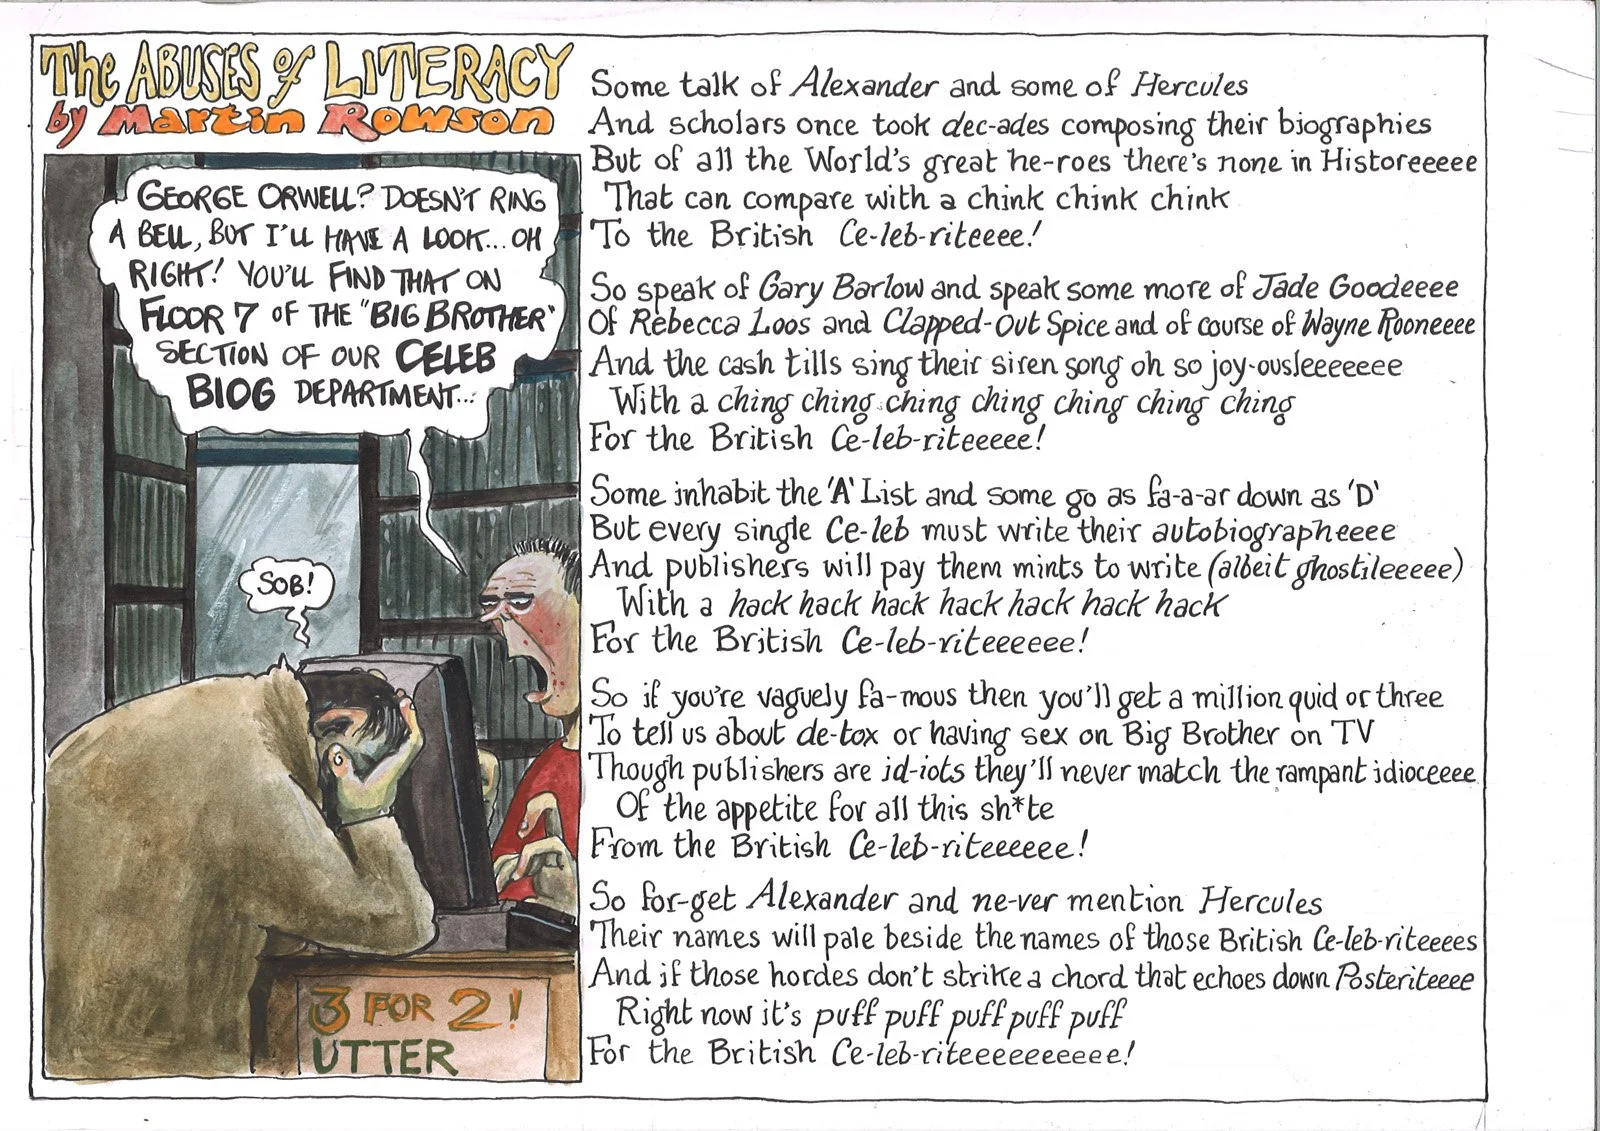 The ABUSES of LITERACY
by Martin Rowson
GEORGE ORWELL? DOESN'T RING
A BELL, BUT I'LL HAVE A LOOK... OH
RIGHT! YOU'LL FIND THAT ON
FLOOR 7 OF THE "BIG BROTHER"
SECTION OF OUR CELEB
BIOG DEPARTMENT...
SOB!
3 FOR 2!
UTTER
Some talk of Alexander and some of Hercules
And scholars once took dec-ades composing their biographies
But of all the World's great he-roes there's none in Historeeeee
That can compare with a chink chink chink
To the British Ce-leb-riteeee!
So speak of Gary Barlow and speak some more of Jade Goodeeee
Of Rebecca Loos and Clapped-Out Spice and of course of Wayne Rooneeee
And the cash tills sing their siren song oh so joy-ousleeeeeee
With a ching ching ching ching ching ching ching
For the British Ce-leb-riteeeee!
Some inhabit the 'A' List and some go as fa-a-ar down as 'D'
But every single Ce-leb must write their autobiographeeee
And publishers will pay them mints to write (albeit ghostileeeee)
With a hack hack hack hack hack hack hack
For the British Ce-leb-riteeeeee!
So if you're vaguely fa-mous then you'll get a million quid or three
To tell us about de-tox or having sex on Big Brother on TV
Though publishers are id-iots they'll never match the rampant idioceeee
Of the appetite for all this sh*te
From the British Ce-leb-riteeeeee!
So for-get Alexander and ne-ver mention Hercules
Their names will pale beside the names of those British Ce-leb-riteeees
And if those hordes don't strike a chord that echoes down Posteriteeee
Right now it's puff puff puff puff puff
For the British Ce-leb-riteeeeeeeeee!